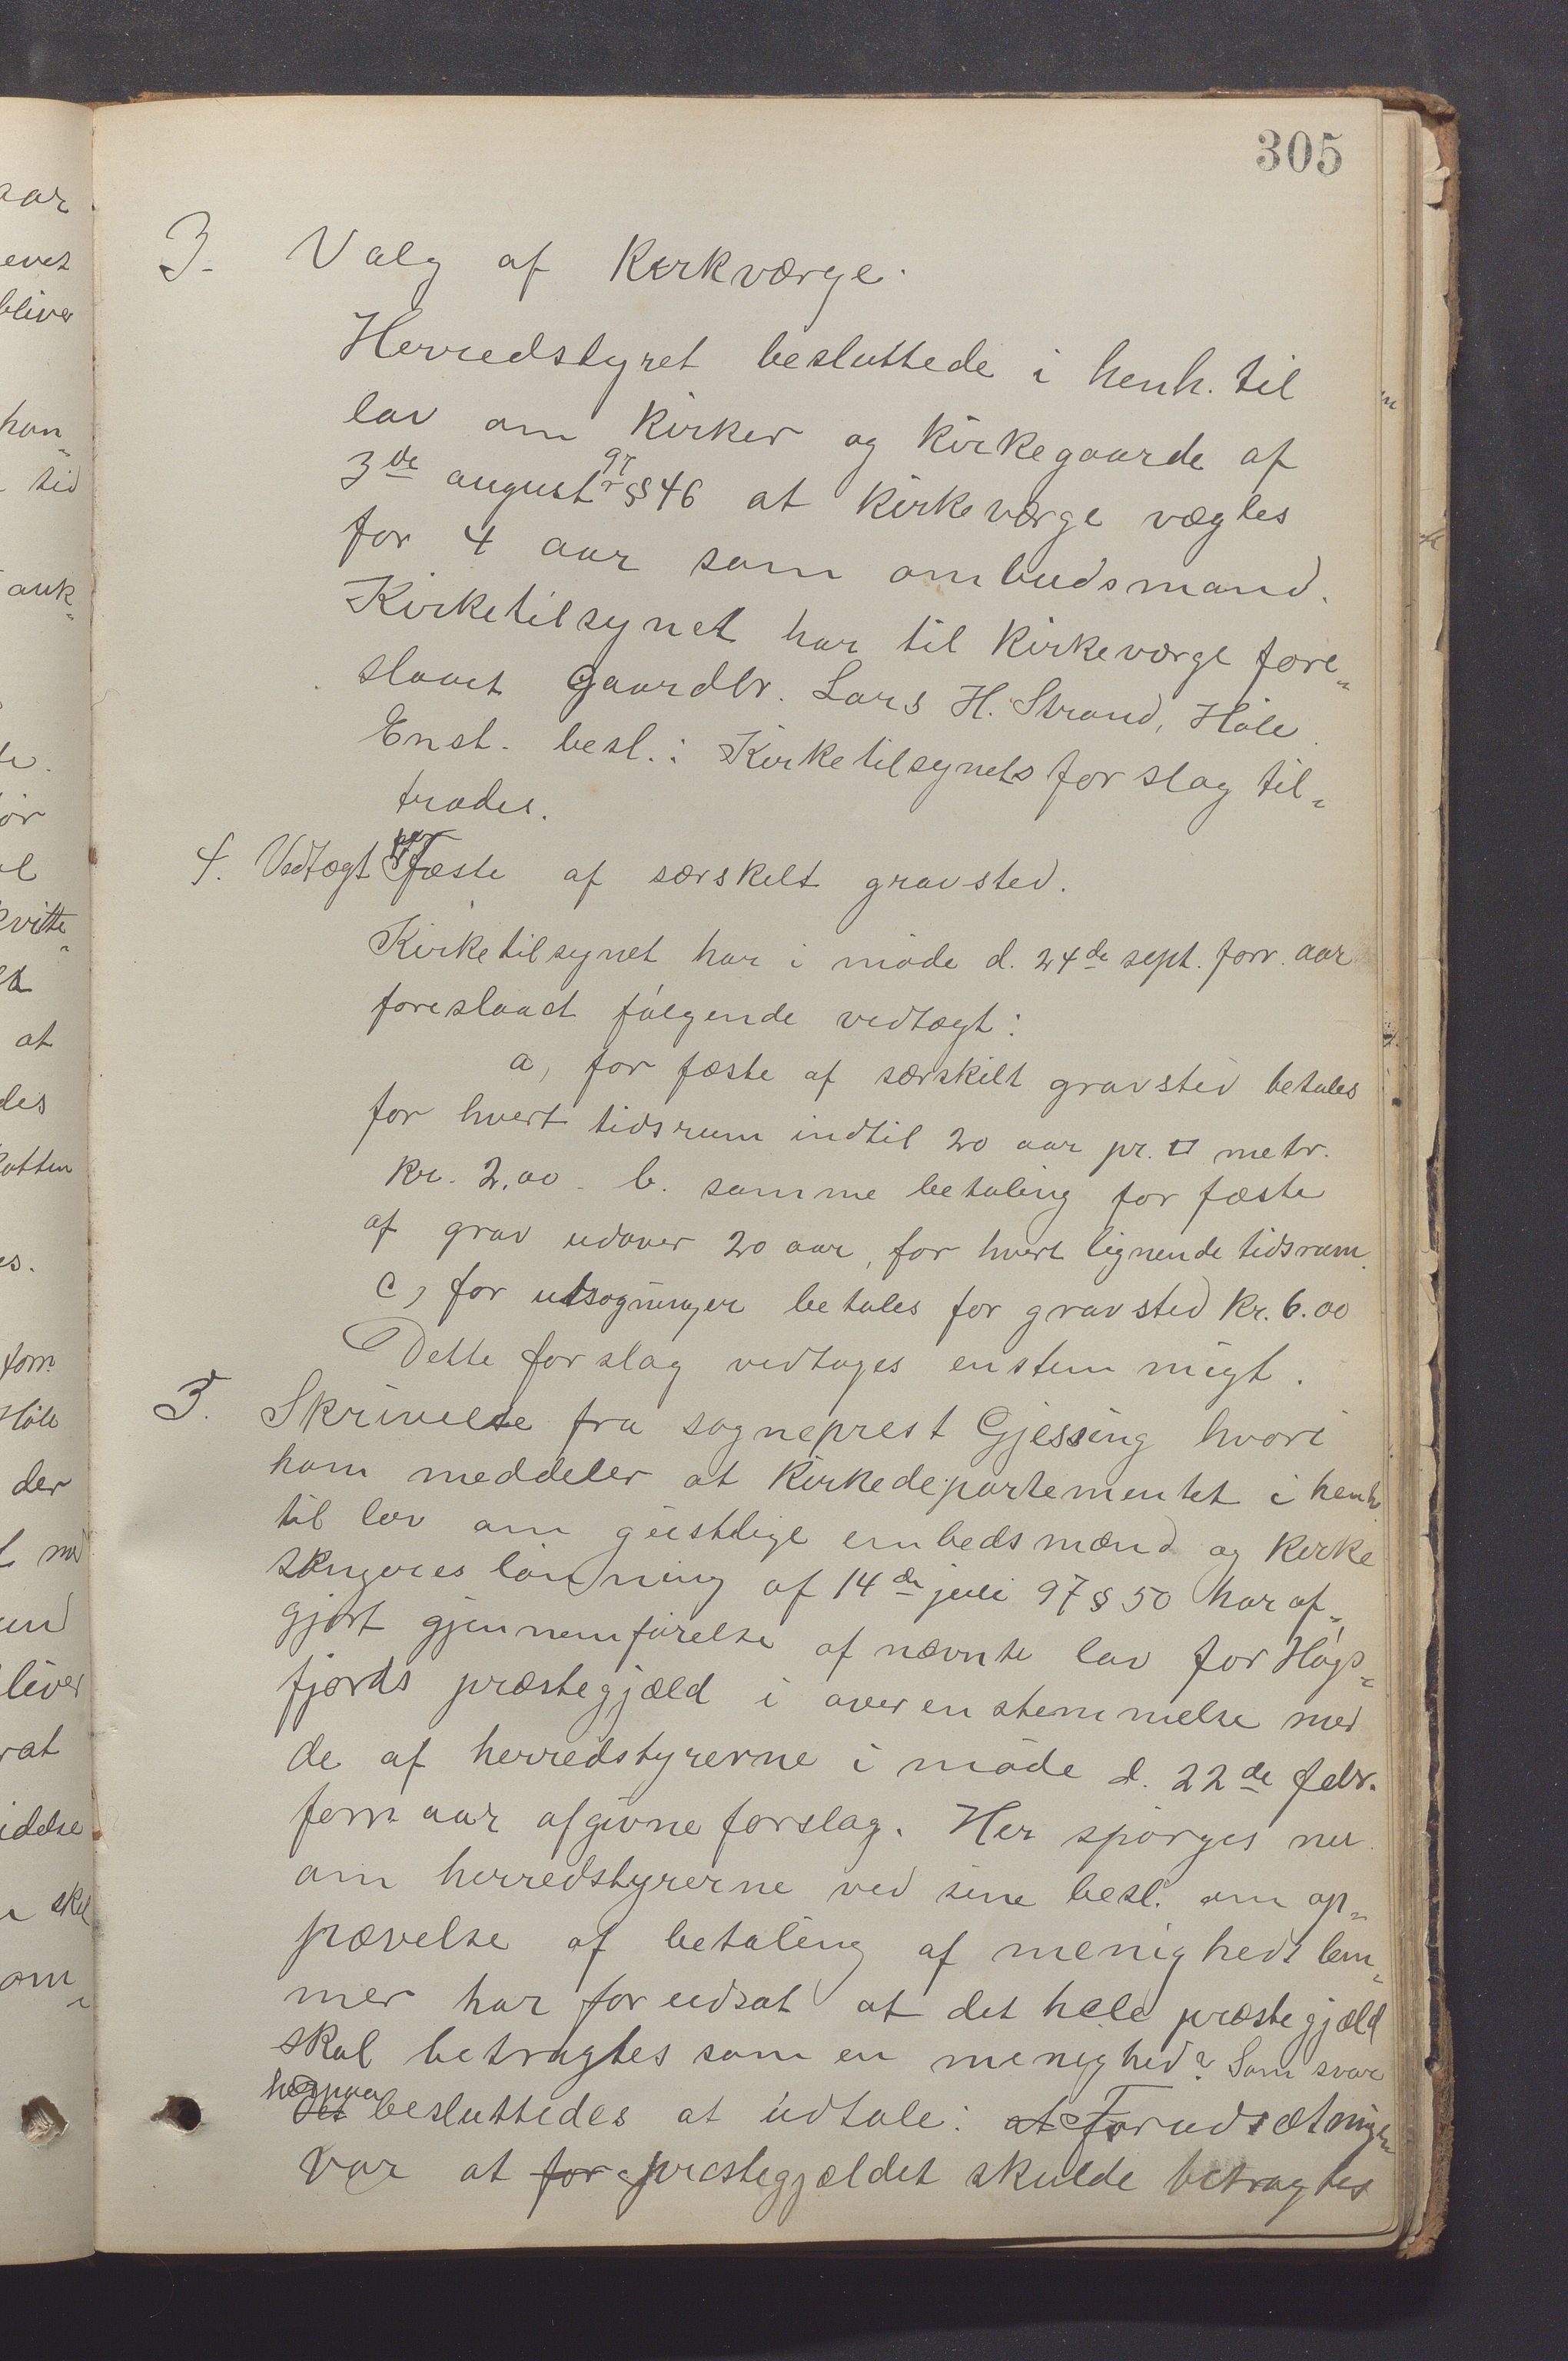 305
3. Valg af Kirkværge.
Herredstyret besluttede i henh. til
lov om kirker og kirkegaarde af
3de august 97 § 46 at kirkeværge vægles
for 4 aar som ombudsmand.
Kirketilsynet har til kirkeværge fore„
slaaet Gaardbr. Lars H. Strand, Høle.
Enst. besl.: Kirketilsynets forslag til„
trædes.
4. Vedtægt for Fæste af særskelt gravsted.
Kirketilsynet har i møde d. 24de sept. forr. aar
foreslaaet følgende vedtægt:
a, for fæste af særskilt gravsted betales
for hvert tidsrum indtil 20 aar pr. □ metr.
kr. 2.00. b. samme betaling for fæste
af grav udover 20 aar, for hvert lignende tidsrum.
c, for udsogninger betales for gravsted kr. 6.00
Dette forslag vedtoges enstemmigt.
5. Skrivelse fra sogneprest Gjessing hvori
ham meddeler at Kirkedepartementet i henh.
til lov om geistlige embedsmænd og kirke
sangeres lønning af 14de juli 97 § 50 har af„
gjort gjennemførelse af nævnte lov for Høgs„
fjords præstegjæld i overenstemmelse med
de af herredstyrerne i møde d. 22de febr.
forr. aar afgivne forslag. Her spørges nu
om herredstyrerne ved sine besl. om op„
prævelse af betaling af menighedslem„
mer har forudsat at det hele præstegjæld
skal betragtes som en menighed? Som svar
herpaa det besluttedes at udtale: at Forudsætningen
var at for præstegjældet skulde betragtes